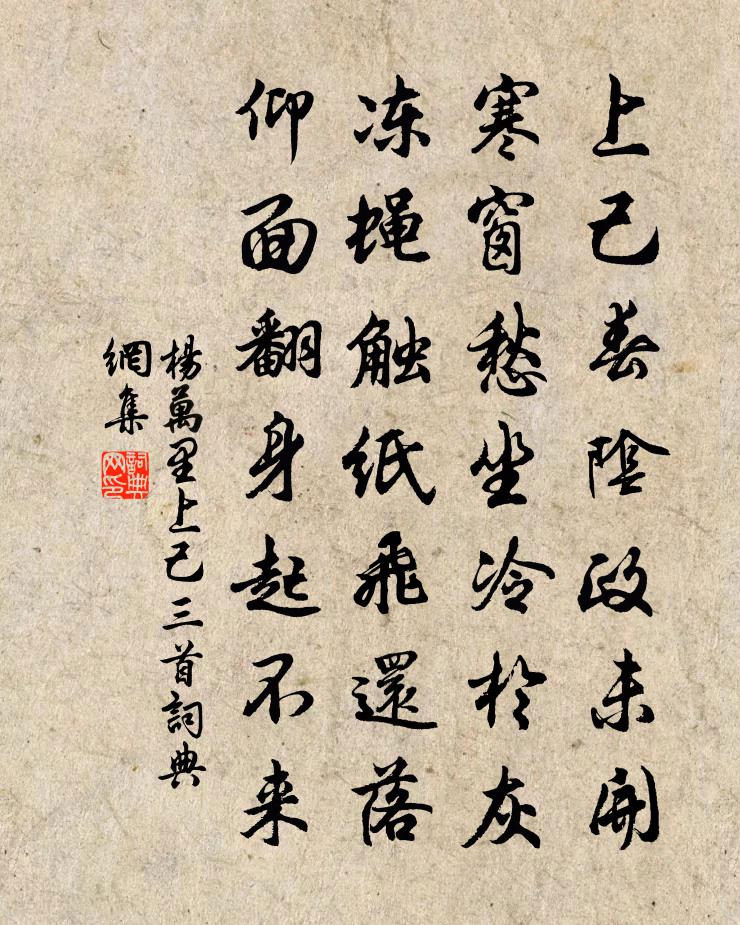 上己春陰政未開
寒窗愁坐冷於灰
冻蝇触纸飛還落
仰面翻身起不来
楊萬里上己三首詞典
網集
詞典
网印